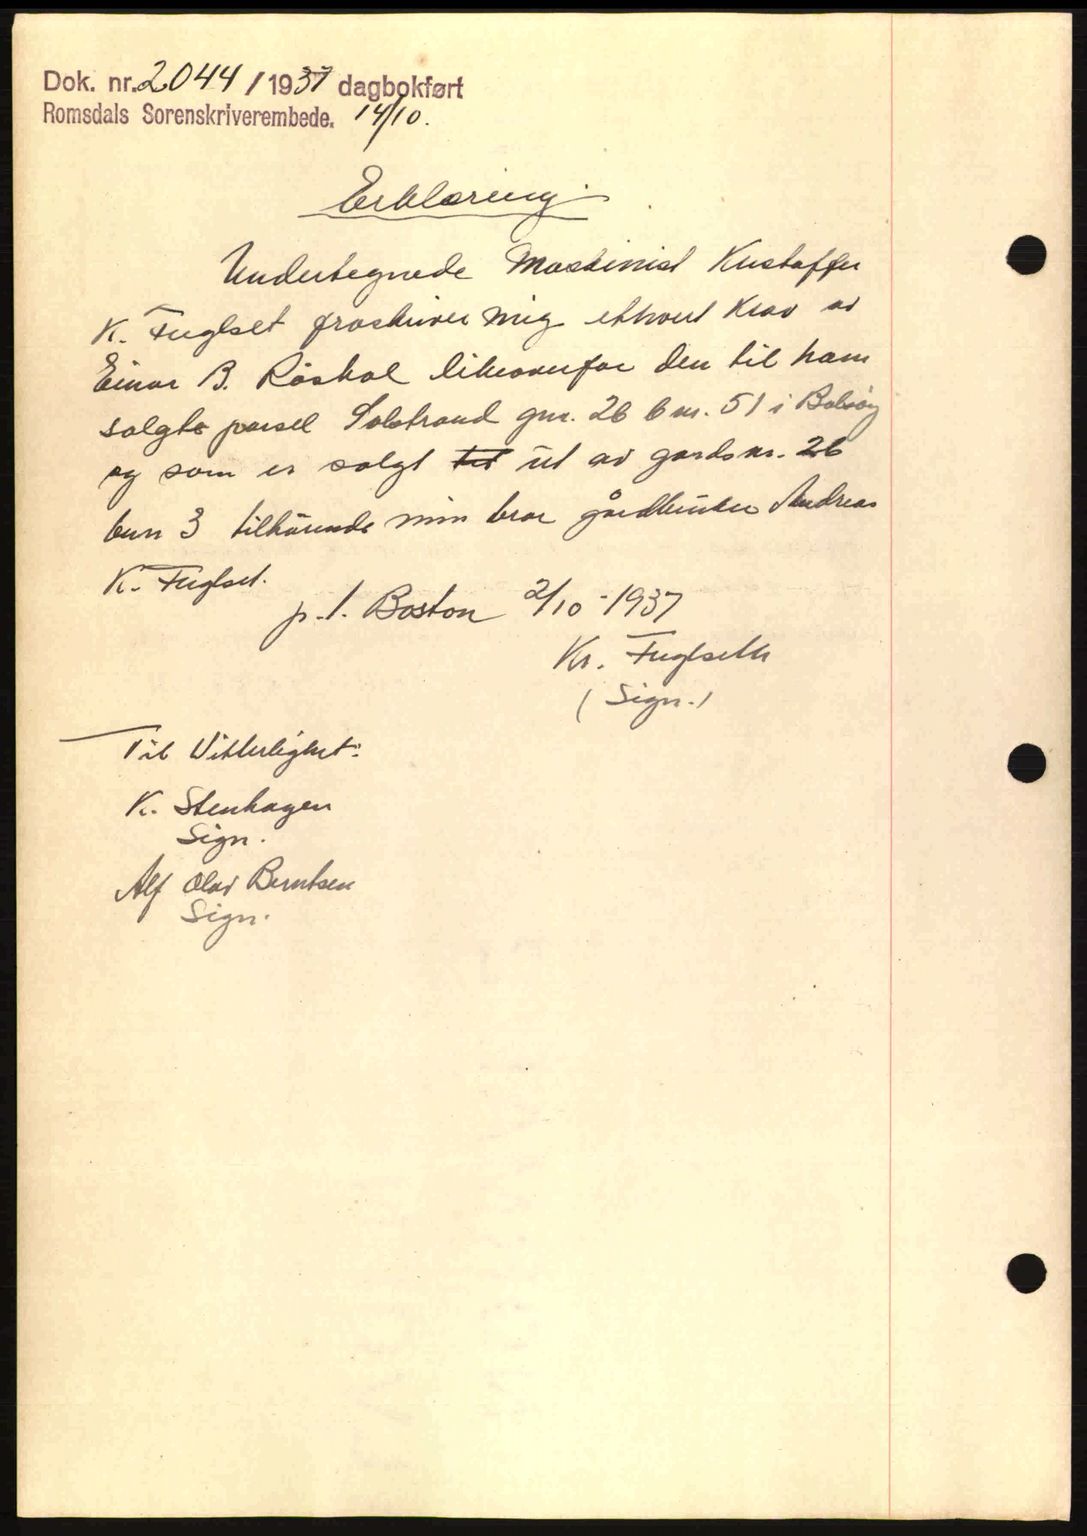 Dok. nr. 2044 / 1937 dagbokført
Romsdals Sorenskriverembede. 14/10.
Erklæring
Undertegnede Maskinist Kristoffer
K. Fuglset fraskriver mig ethvert krav av
Einar B. Röskol likeoverfor den til ham
solgte parsel Solstrand gnr. 26 bnr. 51 i Bolsöy
og som er solgt ut av gardsnr. 26
bnr 3 tilhörende min bror gårdbruker Andreas
K. Fuglset.
p.t. Boston 2/10-1937
Kr. Fuglseth
(Sign.)
Til Vitterlighet:
K. Stenhagen
Sign.
Alf Olav Berntsen
Sign.